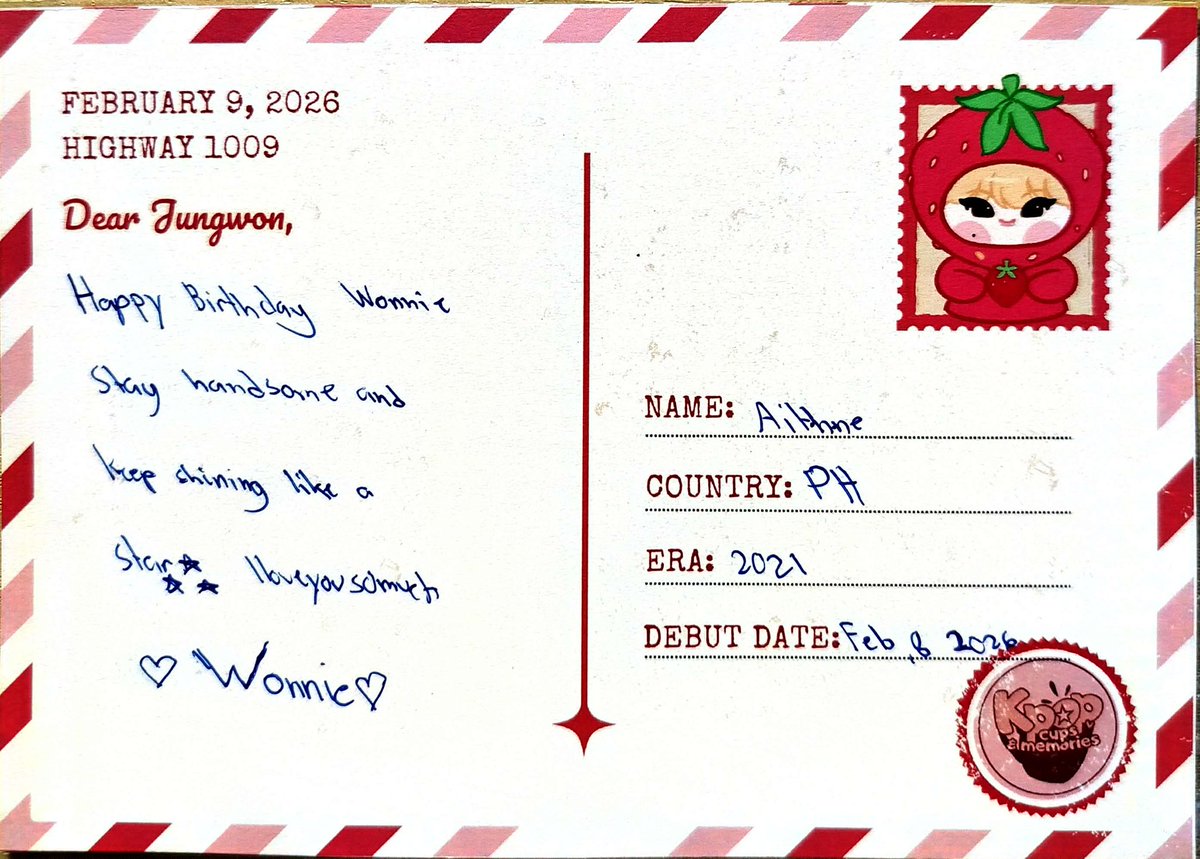 FEBRUARY 9, 2026
HIGHWAY 1009
Dear Jungwon,
Happy Birthday Wonnie
Stay handsome and
keep shining like a
star I love you so much
Wonnie
NAME: Aithne
COUNTRY: PH
ERA: 2021
DEBUT DATE: Feb, 8 2026
Kpop
cups
&memories